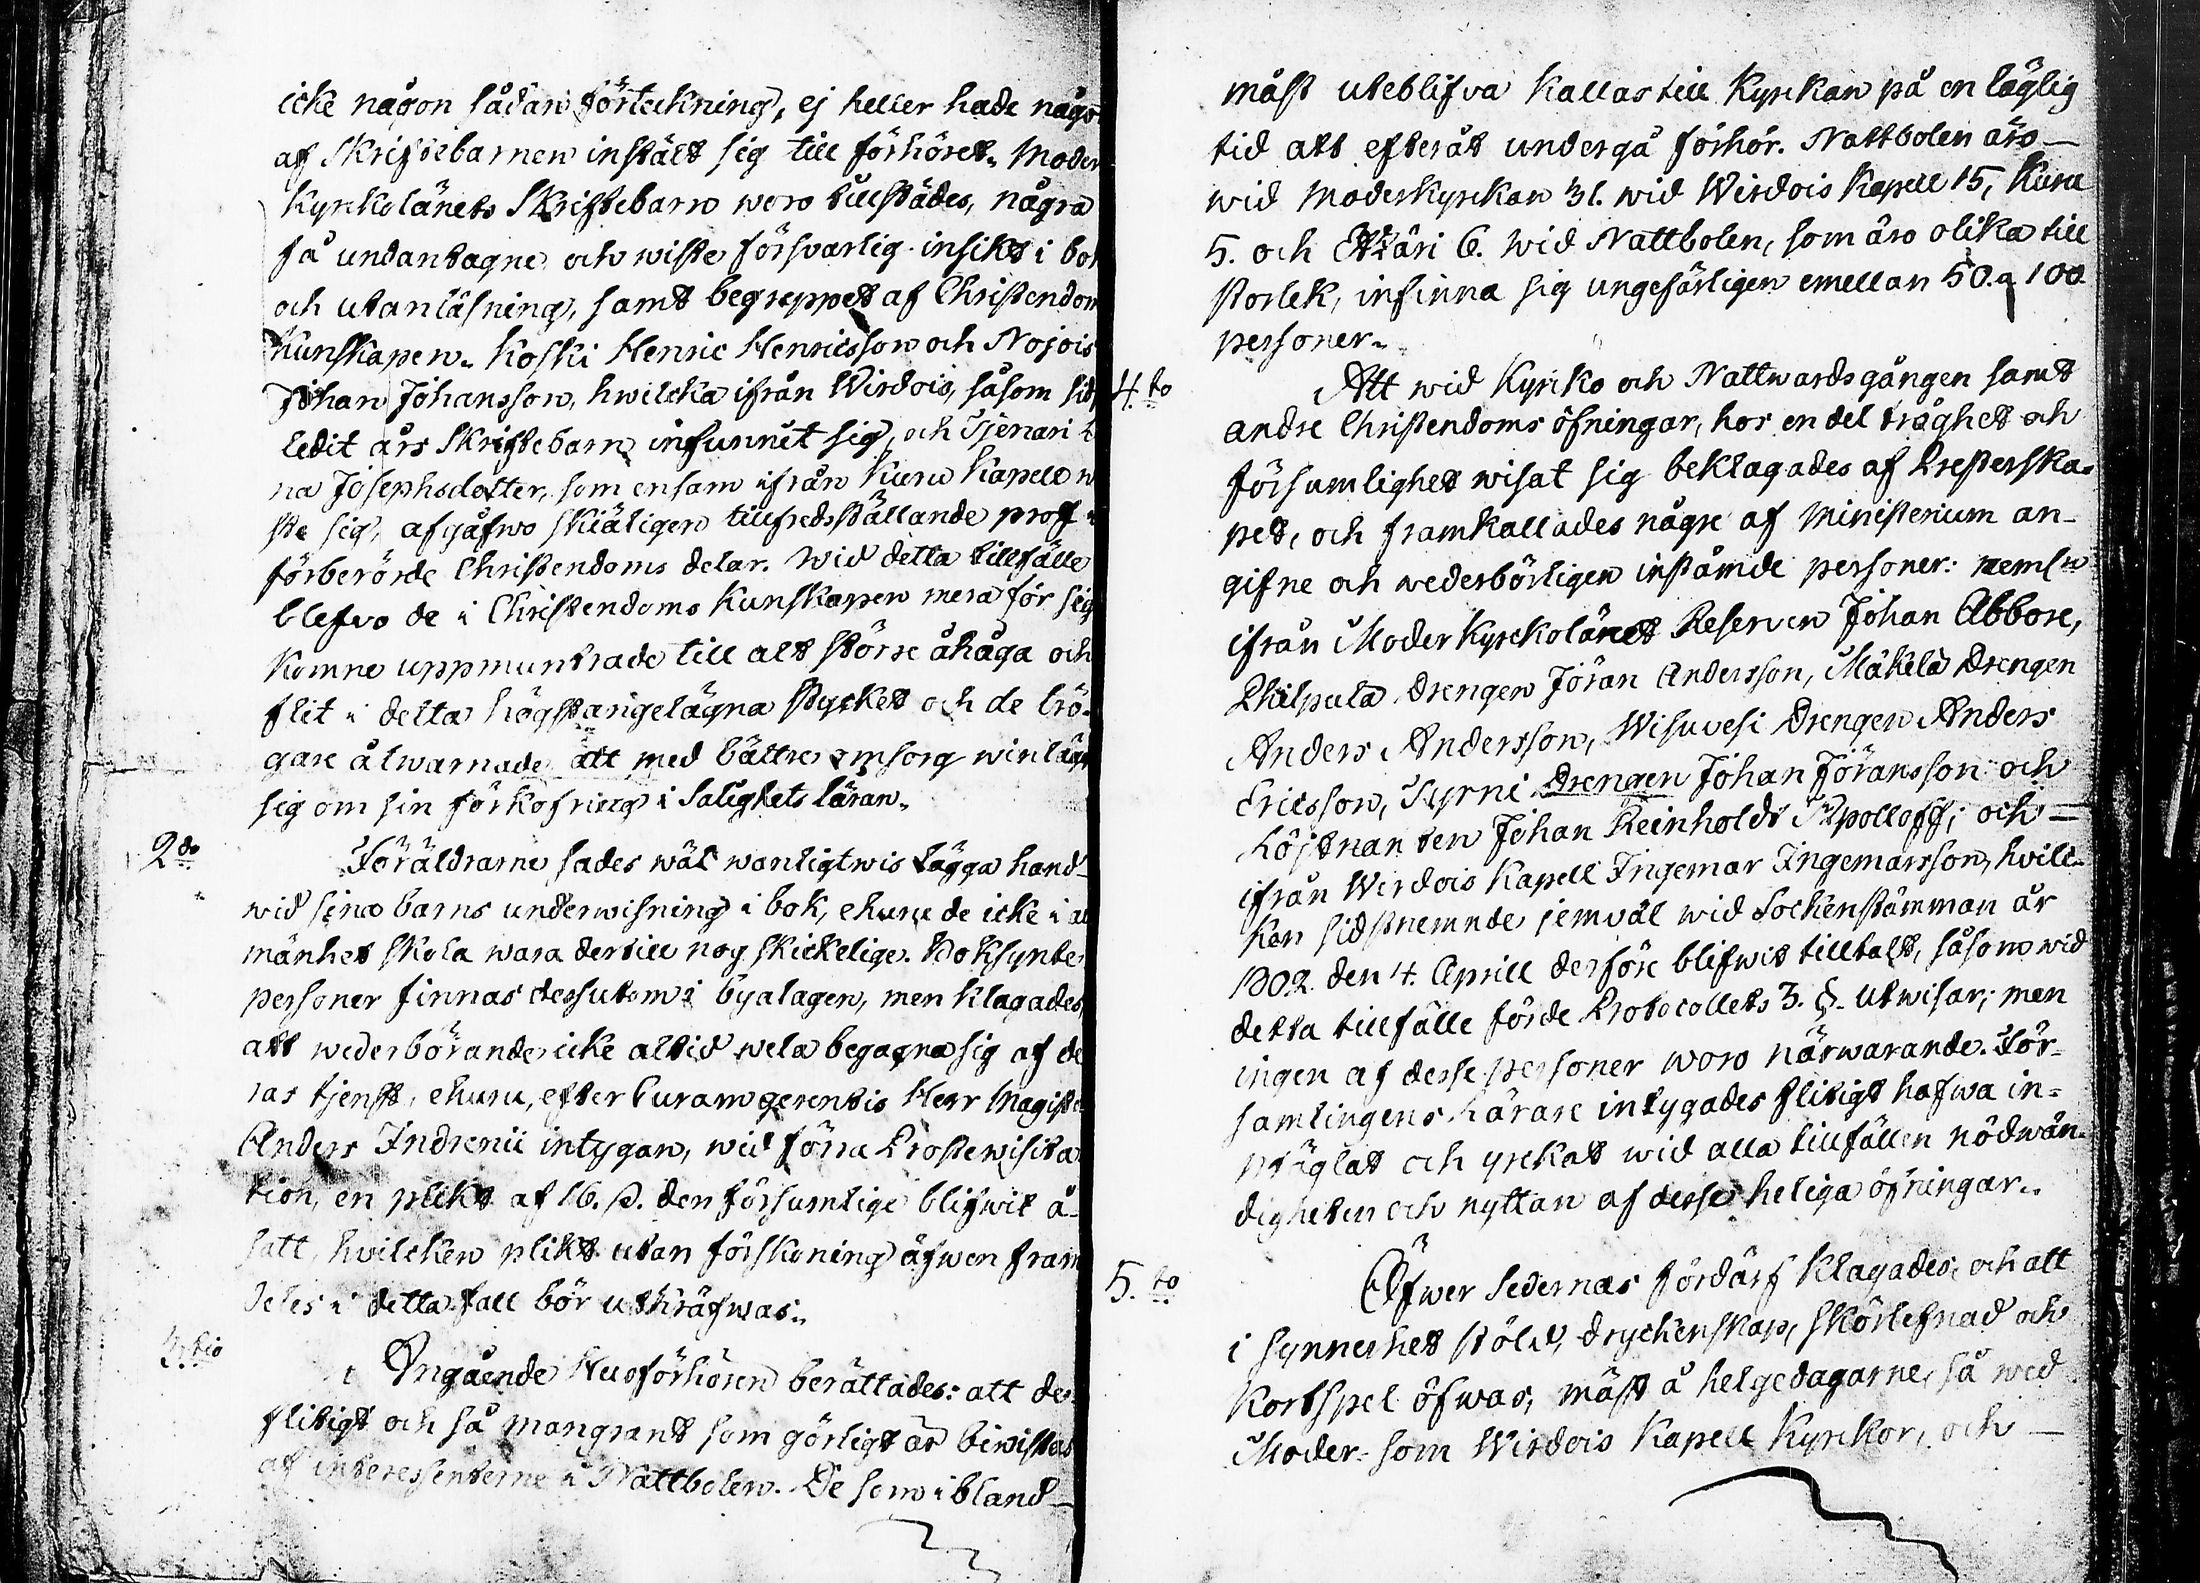 icke någon sådan förteckning, ej heller hade någo
af Skriftebarnen instält sig till förhöret. Moder
Kyrkolänets Skriftebarn woro tillstädes, några
få undantagne och wiste försvarlig insikt i bok
och utanläsning, samt begreppet af Christendom
Kunskapen. Koski Henric Henricsson och Nojois
Johan Johansson, hwilcka ifrån Wirdois, såsom sid
ledit års Skriftebarn infunnit sig, och Tjenari
na Josephsdotter, som ensam ifrån Kuru Kapell
ste sig, afgåfwo skiäligen tillfredsställande prof
förberörde Christendoms delar. Wid detta tillfälle
blefvo de i Christendoms Kunskapen mera för sig
Komne uppmuntrade till alt större åhåga och
flit i detta högstangelägna stycket och de trö-
gare åtwarnade att med bättre omsorg winlägg
sig om sin förkofring i Salighets läran.
2do Föräldrarne sades wäl wanligtwis lägga hand-
wid sina barns underwisning i bok, ehuru de icke i al
mänhet skola wara dertill nog skickelige. Boksynte
personer finnas dessutom i byalagen, men klagades,
att wederbörande icke altid wela begagna sig af de
ras tjenst, ehuru, efter Curam gerentis Herr Magist
Anders Indrenii intygan, wid förra Prostewisita
tion, en plikt af 16. ß. den försumlige blifwit å-
satt, hwilcken plikt utan förskoning äfwen fram
deles i detta fall bör utkräfwas.
3.tio Angående Husförhören berättades: att de
flitigt och så mangrant som görligt är biwistas
af interessenterne i Nattbolen. De som ibland-
måst uteblifva kallas till Kyrkan på en läglig
tid att efteråt undergå förhör. Nattbolen äro—
wid Moderkyrkan 31. wid Wirdois Kapell 15, Kuru
5. och Ätzäri 6. wid Nattbolen, som äro olika till
storlek, infinna sig ungefärligen emellan 50. a 100.
personer.
4.to Att wid Kyrko och Nattwardsgången samt
andre Christendoms öfningar, hos en del tröghet och
försumlighet wisat sig beklagades af Presterska-
pet, och framkallades någre af Ministerium an-
gifne och wederbörligen instämde personer: neml:n
ifrån Moder Kyrkolänet Reserven Johan Abbore,
Philpula Drengen Jöran Andersson, Mäkelä Drengen
Anders Andersson, Wisuvesi Drengen Anders
Ericsson, Syrni Drengen Johan Jöransson och
Löjtnanten Johan Reinholdt Apolloff; och—
ifrån Wirdois Kapell Ingemar Ingemarsson, hvill-
ken sidstnemnde jemväl wid Sockenstämman år
1802. den 4. Aprill derföre blifwit tilltalt, såsom wid
detta tillfälle förde Protocollets 3. §. utwisar; men
ingen af desse personer woro närwarande. För-
samlingens Lärare intygades flitigt hafwa in-
präglat och yrckat wid alla tillfällen nödwän-
digheten och nyttan af desse heliga öfningar.
5.to Öfwer Sedernas fördärf klagades; och att
i synnerhet stöld, dryckenskap, skörlefnad och
Kortspel öfwas, mäst å helgedagarne, så wid
Moder- som Wirdois Kapell Kyrkor, och—